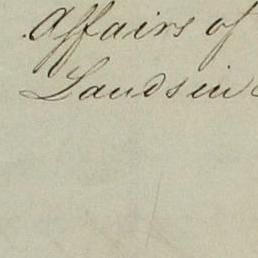 Affairs of
Lands in